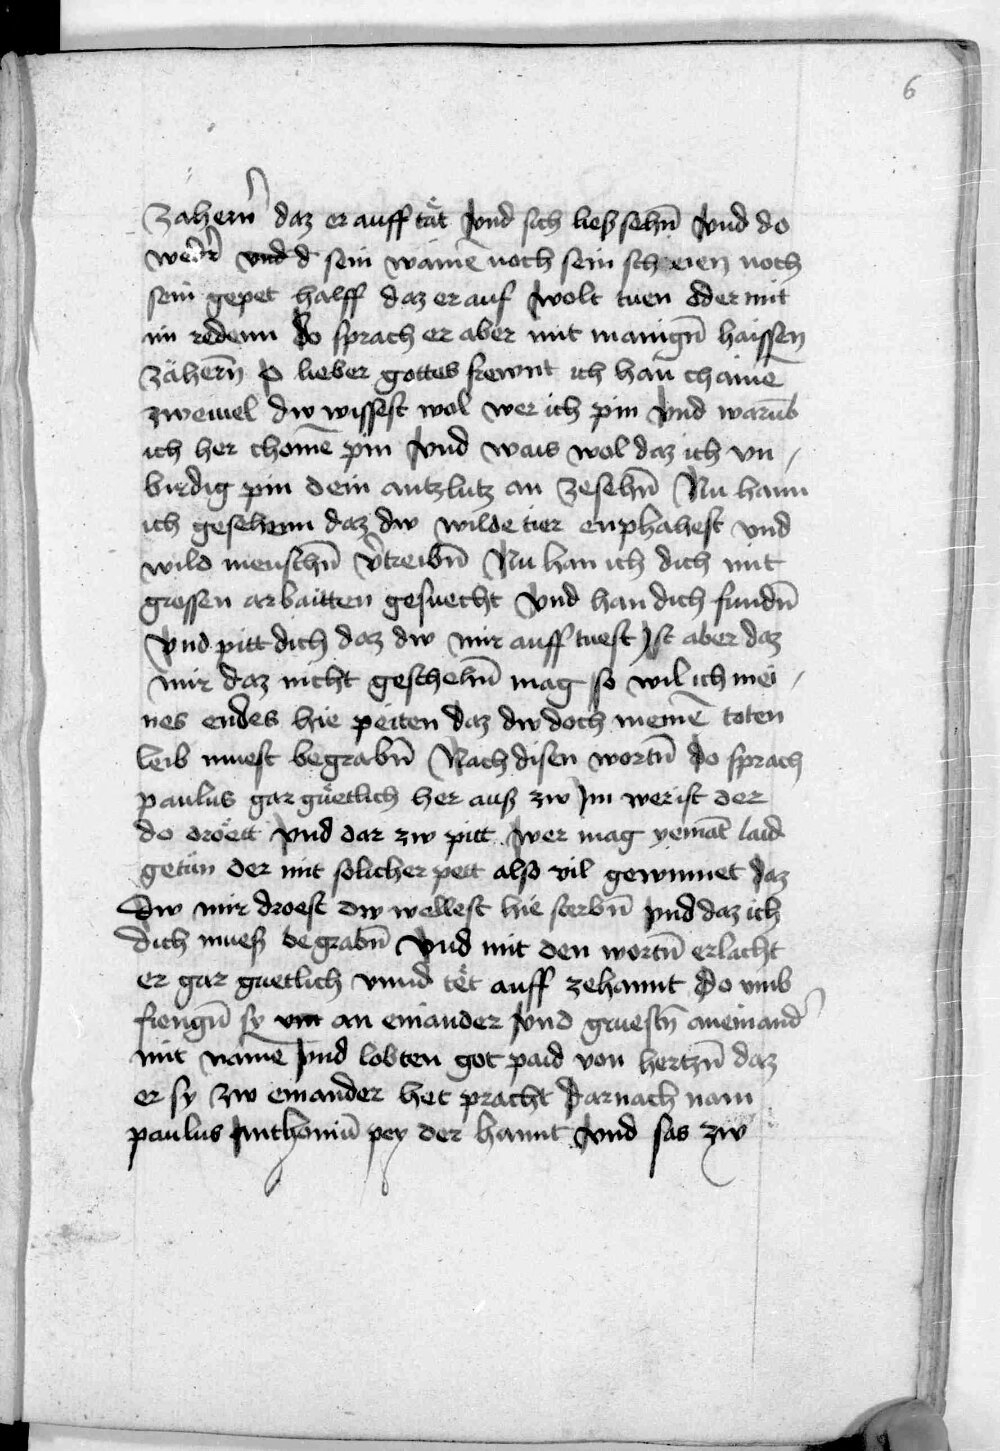 6
zahern̄ daz er auff tät vnd sich liesß sehn̄ vnd do
weder vnd d sein wainē noch sein schreien noch
sein gepet halff daz er auf wolt tuen oder mit
im redenn do sprach er aber mit manign̄ haissen
zähern̄ O lieber gottes frewnt ich han chainē
zweiuel dw wissest wol wer ich pin vnd warūb
ich her chomē pin vnd wais wol daz ich vn /
birdig pin dein antzlutz an zesehn̄ Nu hann
ich gesehenn daz dw wilde tier enphahest vnd
wild menschn̄ v̄treibn̄ Nu han ich dich mit
grossen arbaitten gesuecht vnd han dich fundn̄
vnd pitt dich daz dw mir auff tuest Ist aber daz
mir daz nicht geschehn̄ mag so wil ich mei /
nes endes hie peiten daz dw doch meinē toten
leib muest begrabn̄ Nach disen wortn̄ do sprach
paulus gar güetlich her auß zw Im wer ist der
do dröett vnd dar zw pitt wer mag yemāt laid
getün der mit solicher pett also vil gewinnet daz
dw mir droest dw wellest hie sterbn̄ vnd daz ich
dich mueß begrabn̄ vnd mit den wortn̄ erlacht
er gar guetlich vnnd tët auff zehannt Do vmb
fiengn̄ sy vnt an einander vnd gruestn̄ aneinand̄
mit namē vnd lobten got paid von hertzn̄ daz
er sy zw einander het pracht Darnach nam
paulus Anthoniū pey der hannt vnd sas zw